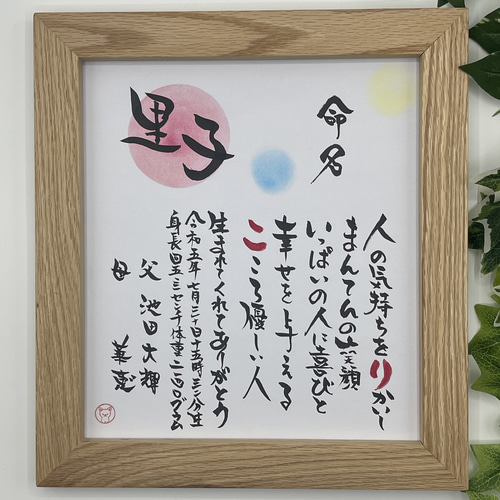 命名
里子
人の気持ちをりかいし
まんてんの笑顔
いっぱいの人に喜びと
幸せを与える
こころ優しい人
生まれてくれてありがとう
令和五年七月三十日十五時三十分生
身長四五.三センチ体重二二四〇グラム
父 池田大輝
母 華恵